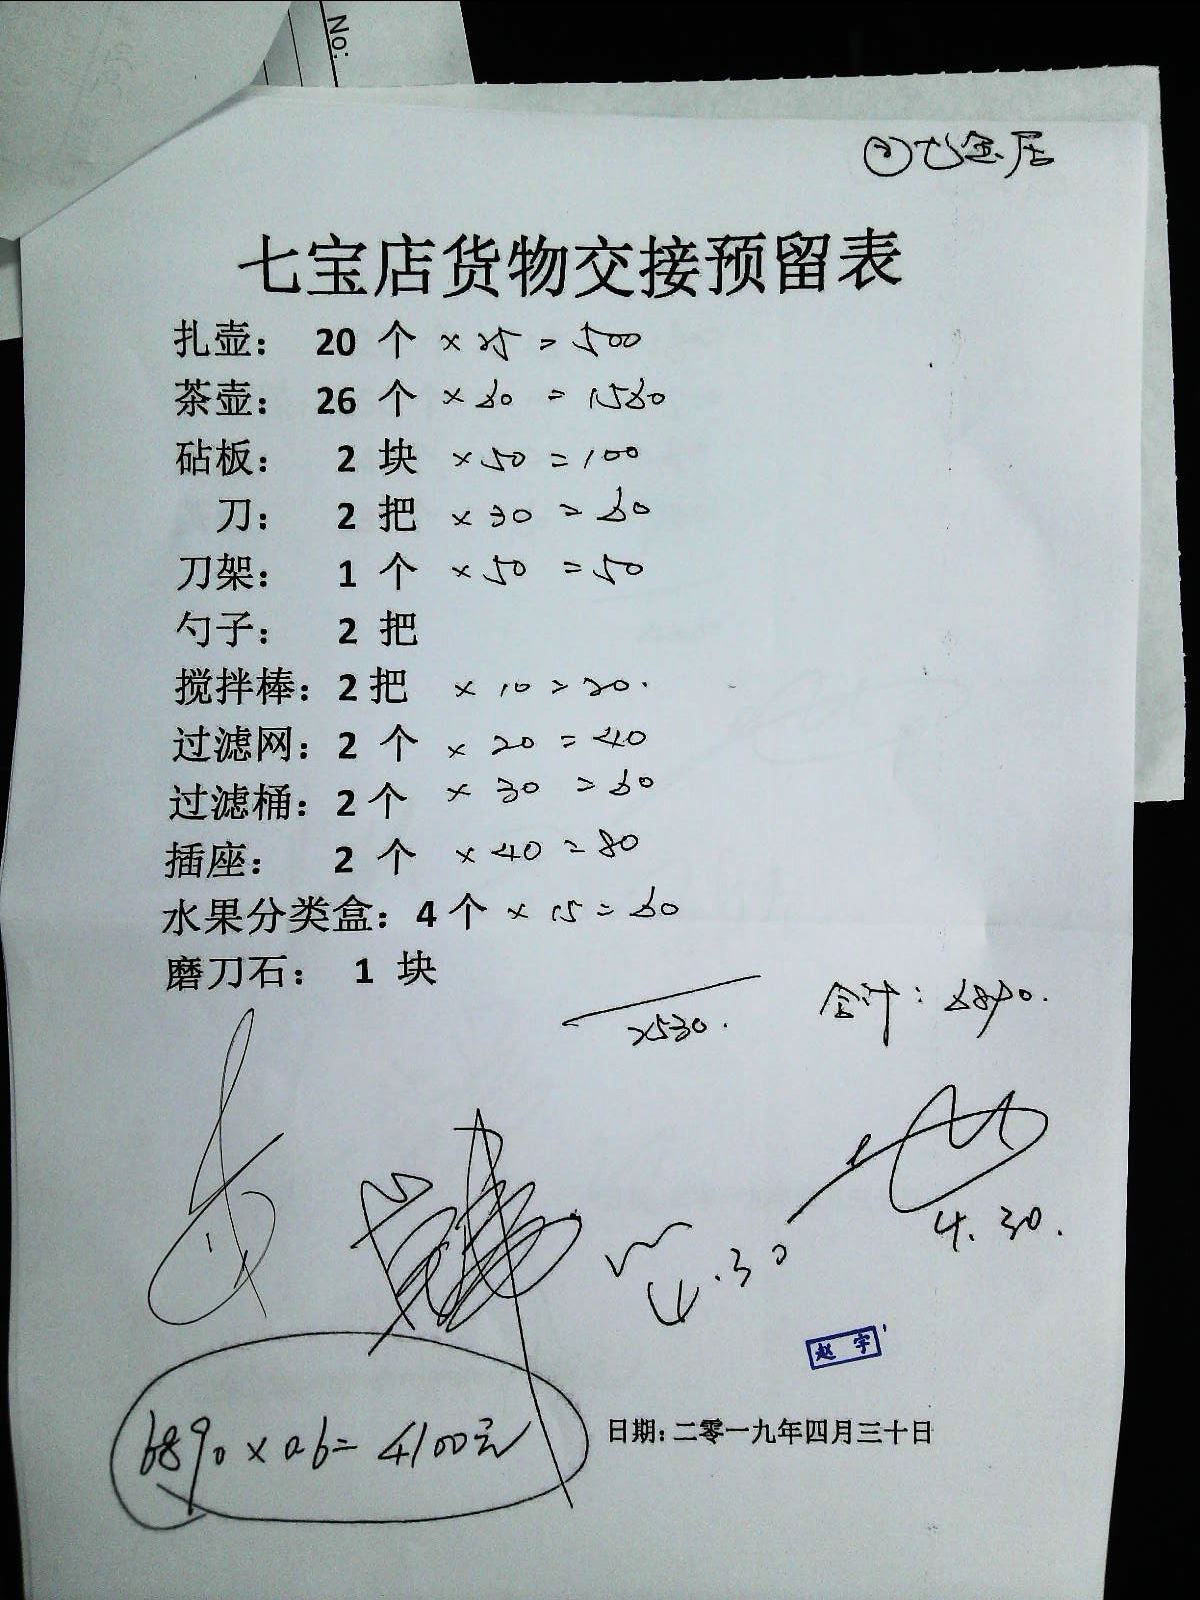 No:
②七宝店
七宝店货物交接预留表
扎壶： 20 个 ×25=500
茶壶： 26 个 ×60=1560
砧板： 2 块 ×50=100
刀： 2 把 ×30=60
刀架： 1 个 ×50=50
勺子： 2 把
搅拌棒：2把 ×10=20.
过滤网：2 个 ×20=40
过滤桶：2个 ×30=60
插座： 2 个 ×40=80
水果分类盒：4个 ×15=60
磨刀石： 1 块
2530.
合计：6890.
4.30
4.30.
赵宇
日期：二零一九年四月三十日
6890×0.6=4100元